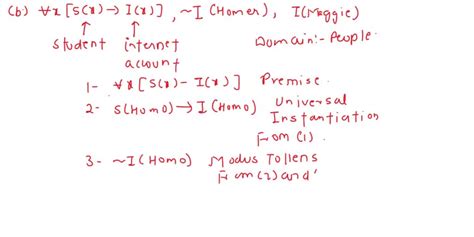 (b) ∀x [S(x) → I(x)] , ~I (Homer) , I(Maggie)
student internet account
Domain:- People.
1- ∀x [S(x) - I(x)] Premise.
2- S(Homo) → I (Homo) Universal
Instantiation
From (1) .
3- ~I (Homo) Modus Tollens
From (2) and '